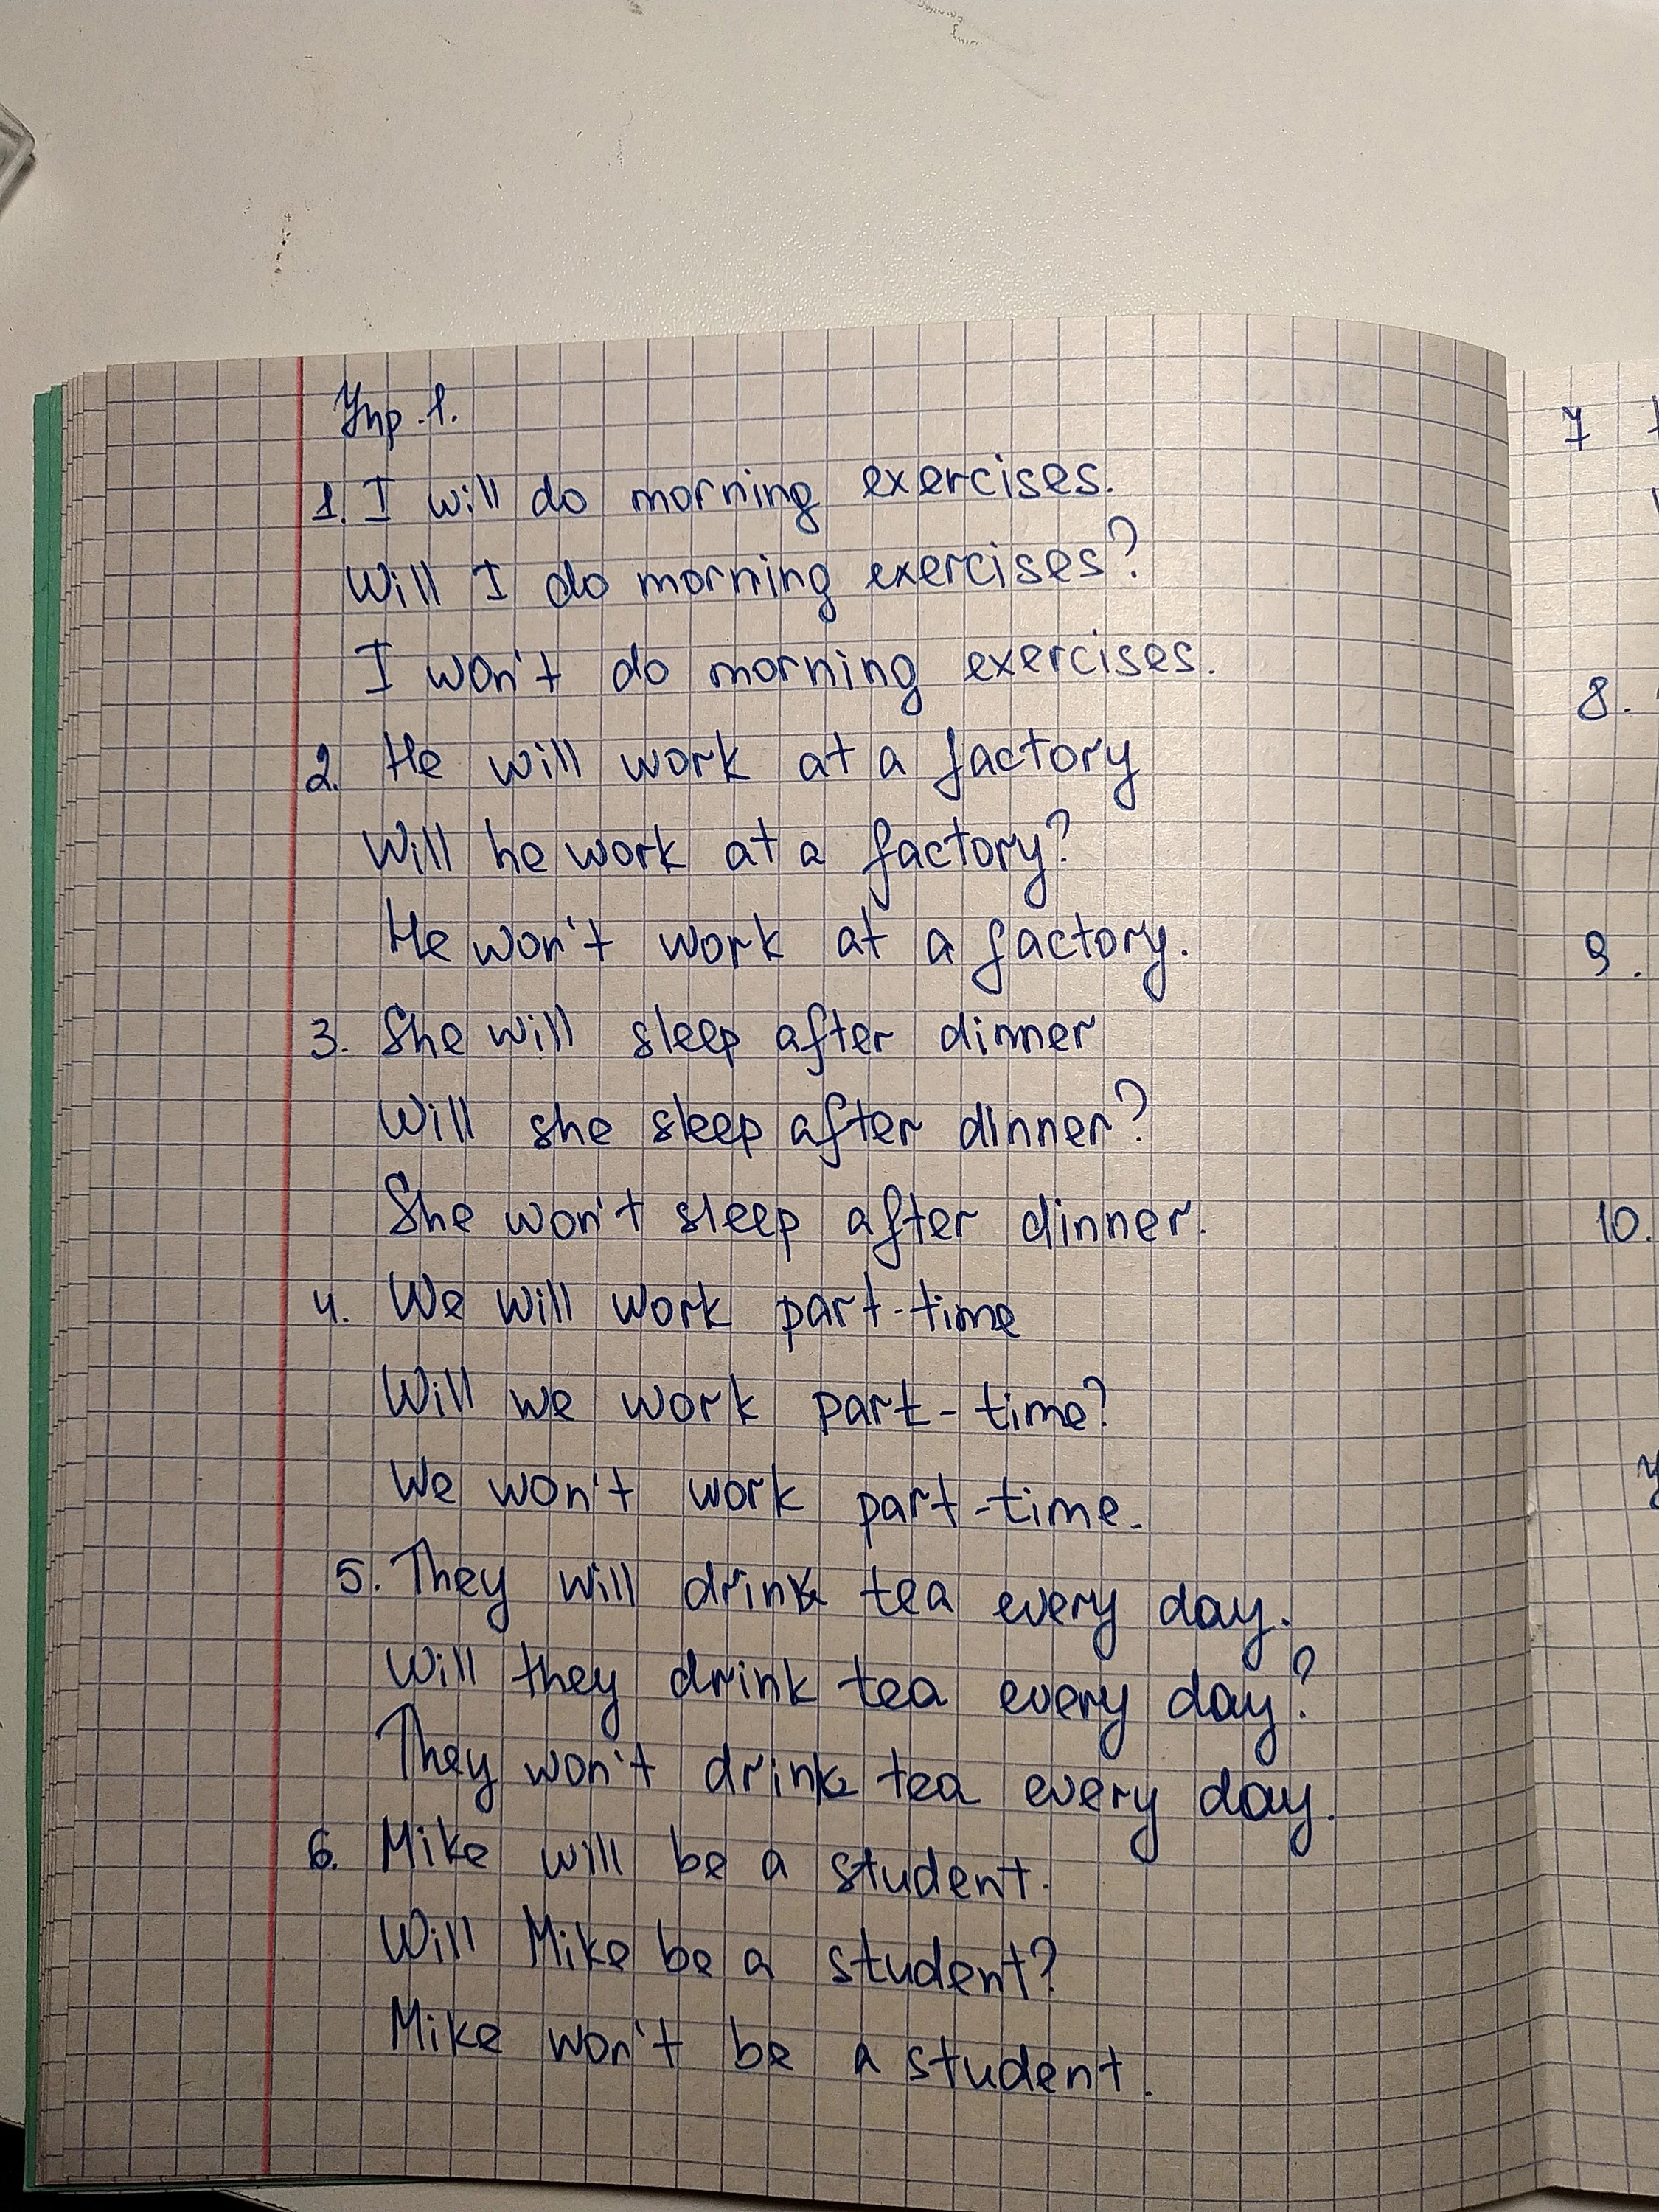 Упр. 1.
1. I will do morning exercises.
Will I do morning exercises?
I won't do morning exercises.
2. He will work at a factory
Will he work at a factory?
He won't work at a factory.
3. She will sleep after dinner
Will she sleep after dinner?
She won't sleep after dinner.
4. We will work part-time
Will we work part-time?
We won't work part-time.
5. They will drink tea every day.
Will they drink tea every day?
They won't drink tea every day.
6. Mike will be a student.
Will Mike be a student?
Mike won't be a student.
7
8.
9.
10.